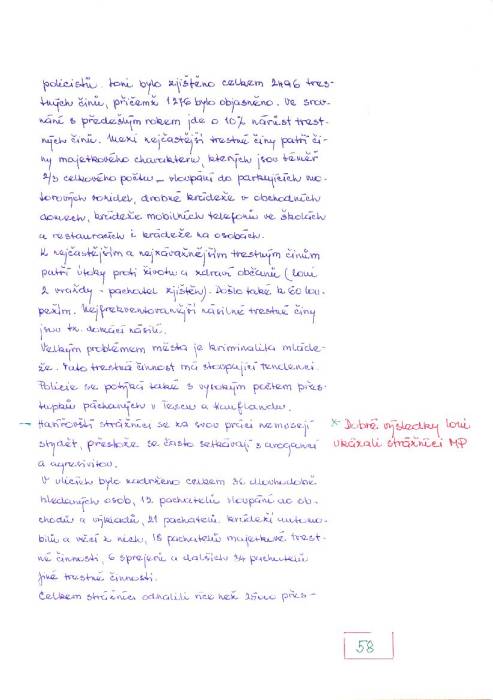 policistů. Loni bylo zjištěno celkem 2496 tres-
tných činů, přičemž 1276 bylo objasněno. Ve srov-
nání s předešlým rokem jde o 10% nárůst trest-
ných činů. Mezi nejčastější trestné činy patří či-
ny majetkového charakteru, kterých jsou téměř
2/3 celkového počtu – vloupání do parkujících mo-
torových vozidel, drobné krádeže v obchodních
domech, krádeže mobilních telefonů ve školách
a restauracích i krádeže na osobách.
K nejčastějším a nejzávažnějším trestným činům
patří útoky proti životu a zdraví občanů (loni
2 vraždy - pachatel zjištěn). Došlo také k 60 lou-
pežím. Nejfrekventovanější násilné trestné činy
jsou tz. domácí násilí.
Velkým problémem města je kriminalita mláde-
že. Tato trestná činnost má stoupající tendenci.
Policie se potýká také s vysokým počtem přes-
tupků páchaných v Tescu a Kauflandu.
– Havířovští strážníci se za svou práci nemusejí
stydět, přestože se často setkávají s arogancí
a agresivitou.
V ulicích bylo zadrženo celkem 36 dlouhodobě
hledaných osob, 12 pachatelů vloupání do ob-
chodů a výkladů, 21 pachatelů krádeží automo-
bilů a věcí z nich, 18 pachatelů majetkové trest-
né činnosti, 6 sprejerů a dalších 34 pachatelů
jiné trestné činnosti.
Celkem strážníci odhalili více než 25000 přes-
x Dobré výsledky loni
ukázali strážníci MP
58